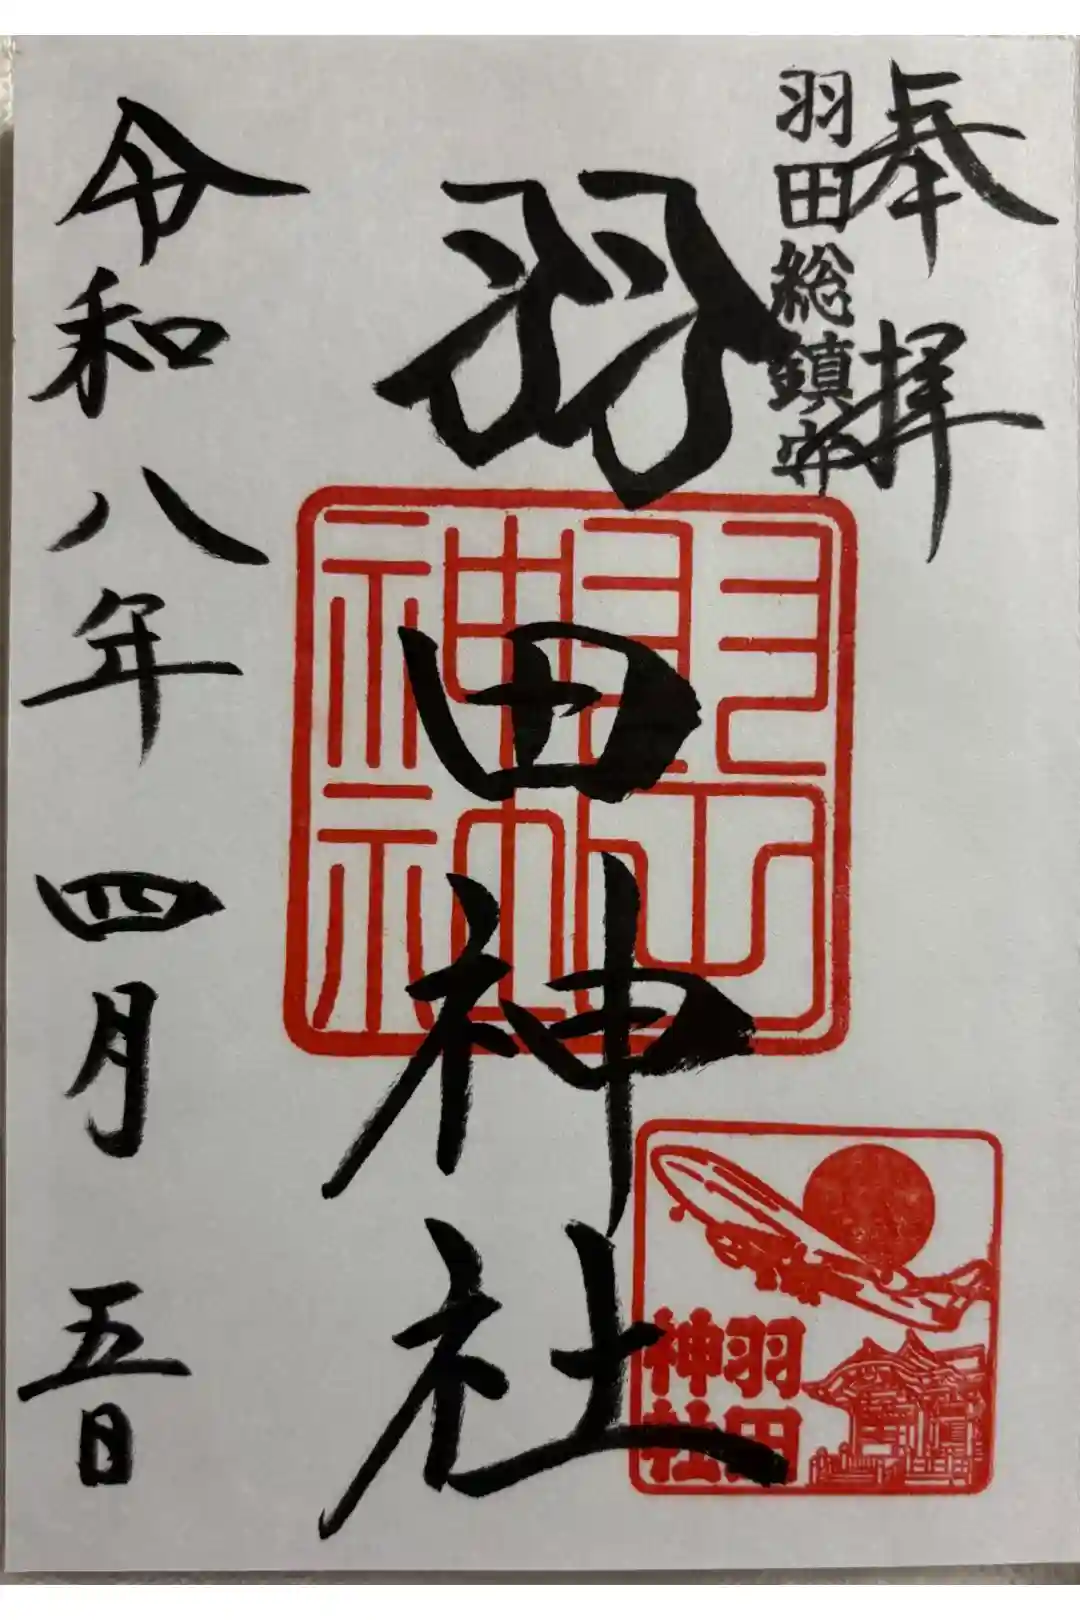 奉拝
羽田総鎮守
羽田神社
羽田神社
羽田
神社
令和八年四月五日